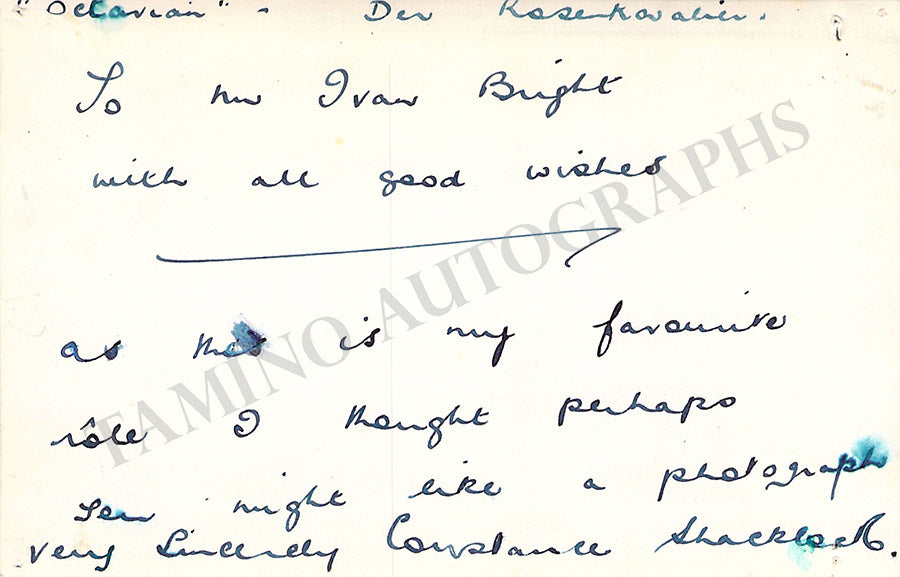 "Octavian" - Der Rosenkavalier.
To Mr Ivan Bright
with all good wishes
as this is my favourite
rôle I thought perhaps
you might like a photograph
very Sincerely Constance Shacklock.
TAMINO AUTOGRAPHS